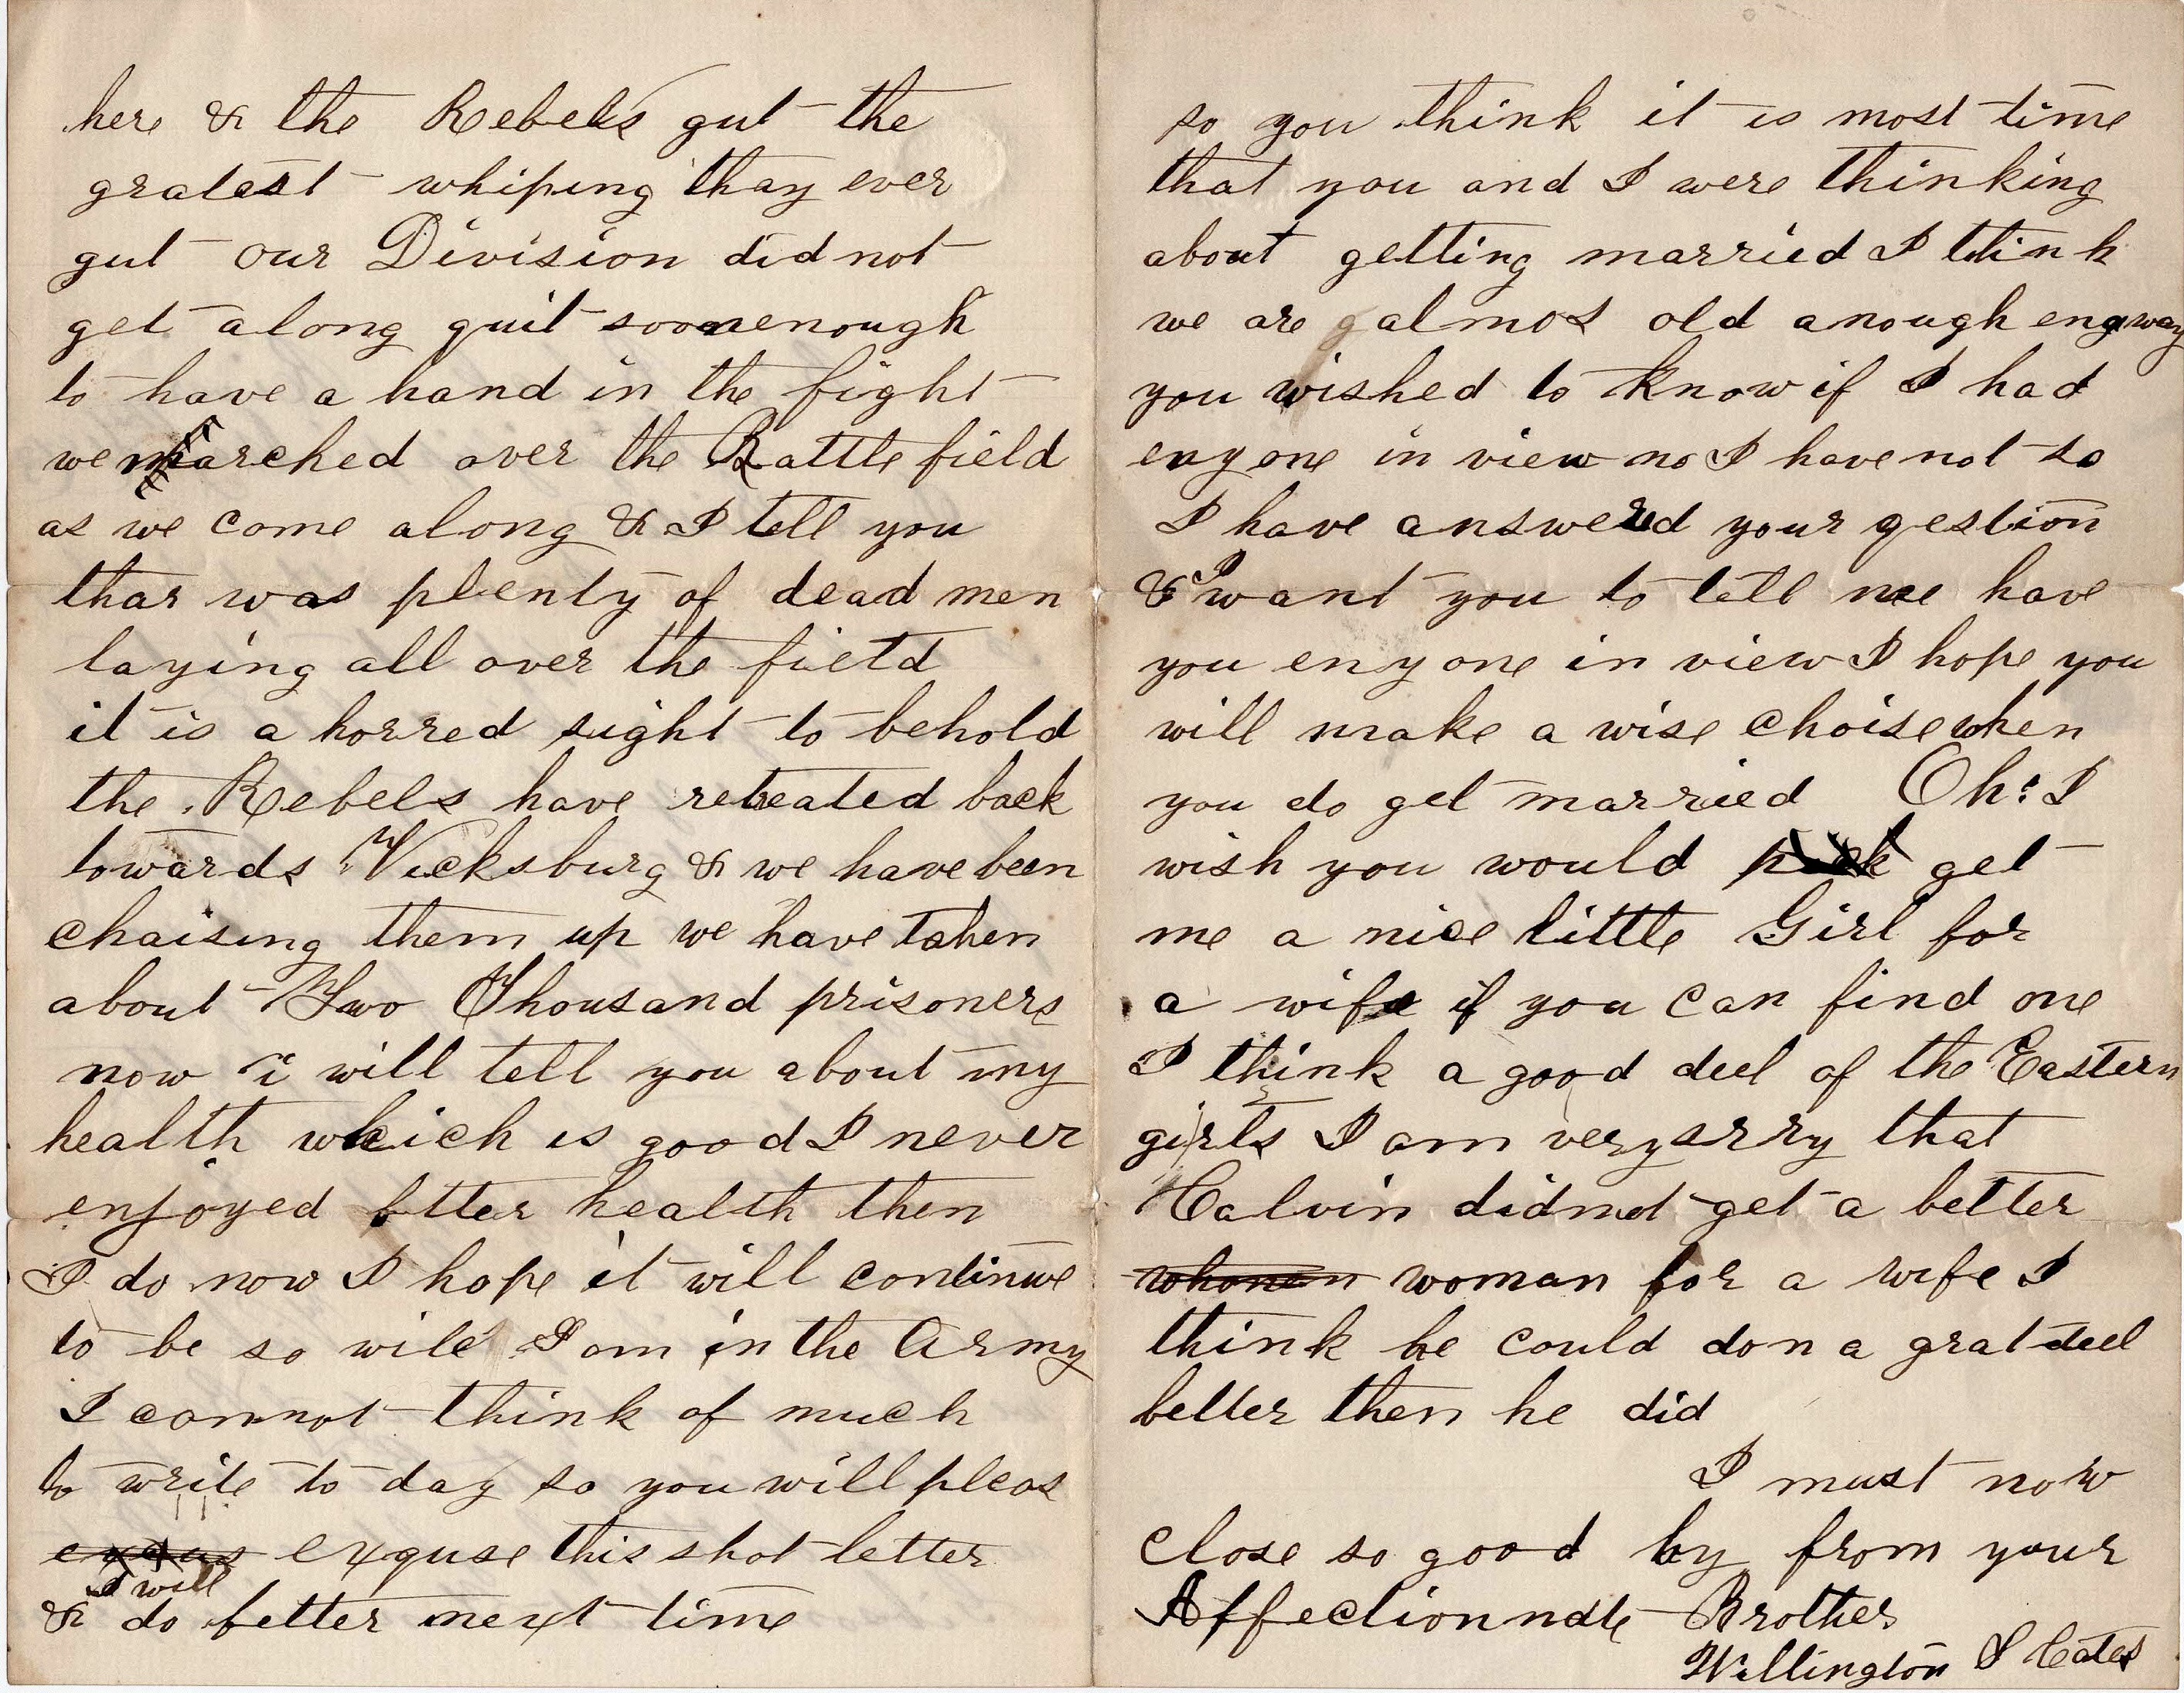 here & the Rebels gut the
gratest whiping thay ever
gut our Division did not
get along quit soon enough
to have a hand in the fight
we marched over the Battle field
as we come along & I tell you
thar was plenty of dead men
laying all over the field
it is a horred sight to behold
the Rebels have retreated back
towards Vicksburg & we have been
chaising them up we have taken
about Two Thousand prisoners
now i will tell you about my
health which is good I never
enjoyed btter health then
I do now I hope it will continue
to be so wile I am in the Army
I cannot think of much
to write to day so you will pleas
exquse this shot letter
I will
& do better next time
so you think it is most time
that you and I were thinking
about getting married I think
we are almos old anough engway
you wished to know if I had
eny one in view no I have not so
I have answered your qestion
& I want you to tell me have
you eny one in view I hope you
will make a wise choise when
you do get married Oh: I
wish you would get
me a nice little Girl for
a wife if you can find one
I think a good deel of the Eastern
girls I am very srry that
Calvin did not get a better
whomen woman for a wife I
think he could don a grat deel
better then he did
I must now
close so good by from your
Affectionnate Brother
Wellington S Cates